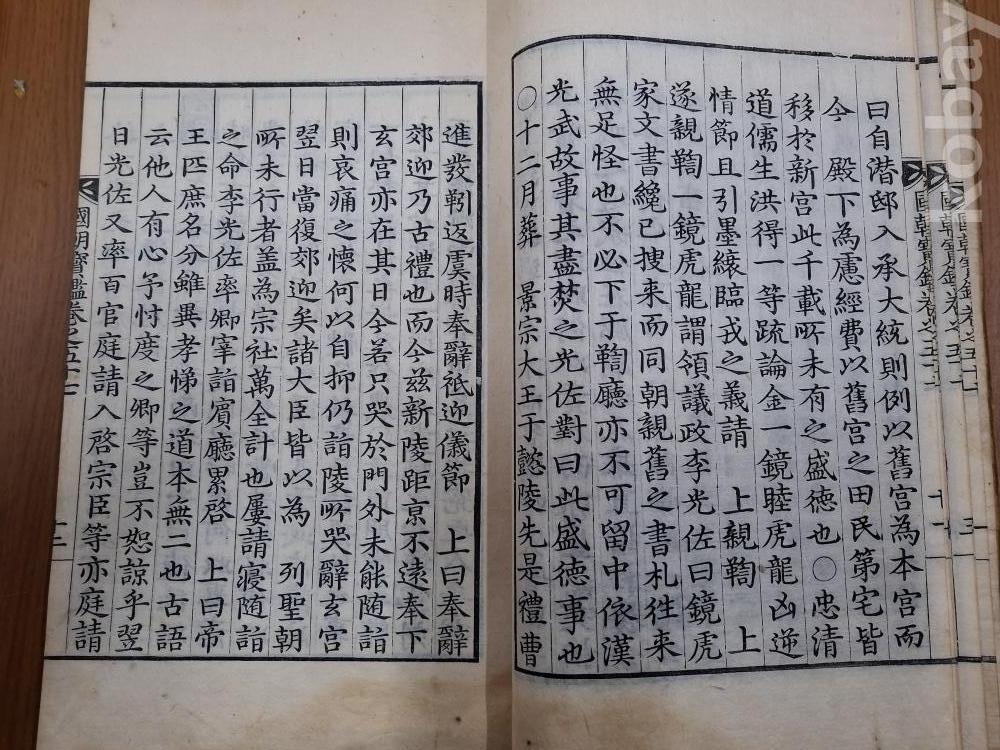 曰自潜邸入承大統則例以舊宮為本宮而
今 殿下為慮經費以舊宮之田民第宅皆
移於新宮此千載所未有之盛德也○忠清
道儒生洪得一等疏論金一鏡睦虎龍凶逆
情節且引墨縗臨戎之義請 上親鞫 上
遂親鞫一鏡虎龍謂領議政李光佐曰鏡虎
家文書纔已搜來而同朝親舊之書札徃来
無足怪也不必下于鞫廳亦不可留中依漢
光武故事其盡焚之光佐對曰此盛德事也
○十二月葬 景宗大王于懿陵先是禮曹
進發靷返虞時奉辭祗迎儀節 上曰奉辭
郊迎乃古禮也而今茲新陵距京不遠奉下
玄宮亦在其日今若只哭於門外未能随詣
則哀痛之懷何以自抑仍詣陵所哭辭玄宮
翌日當復郊迎矣諸大臣皆以為 列聖朝
所未行者盖為宗社萬全計也屢請寢随詣
之命李光佐率卿宰詣賓廳累啓 上曰帝
王匹庶名分雖異孝悌之道本無二也古語
云他人有心予忖度之卿等豈不恕諒乎翌
日光佐又率百官庭請入啓宗臣等亦庭請
國朝寶鑑卷之五十七
kobay